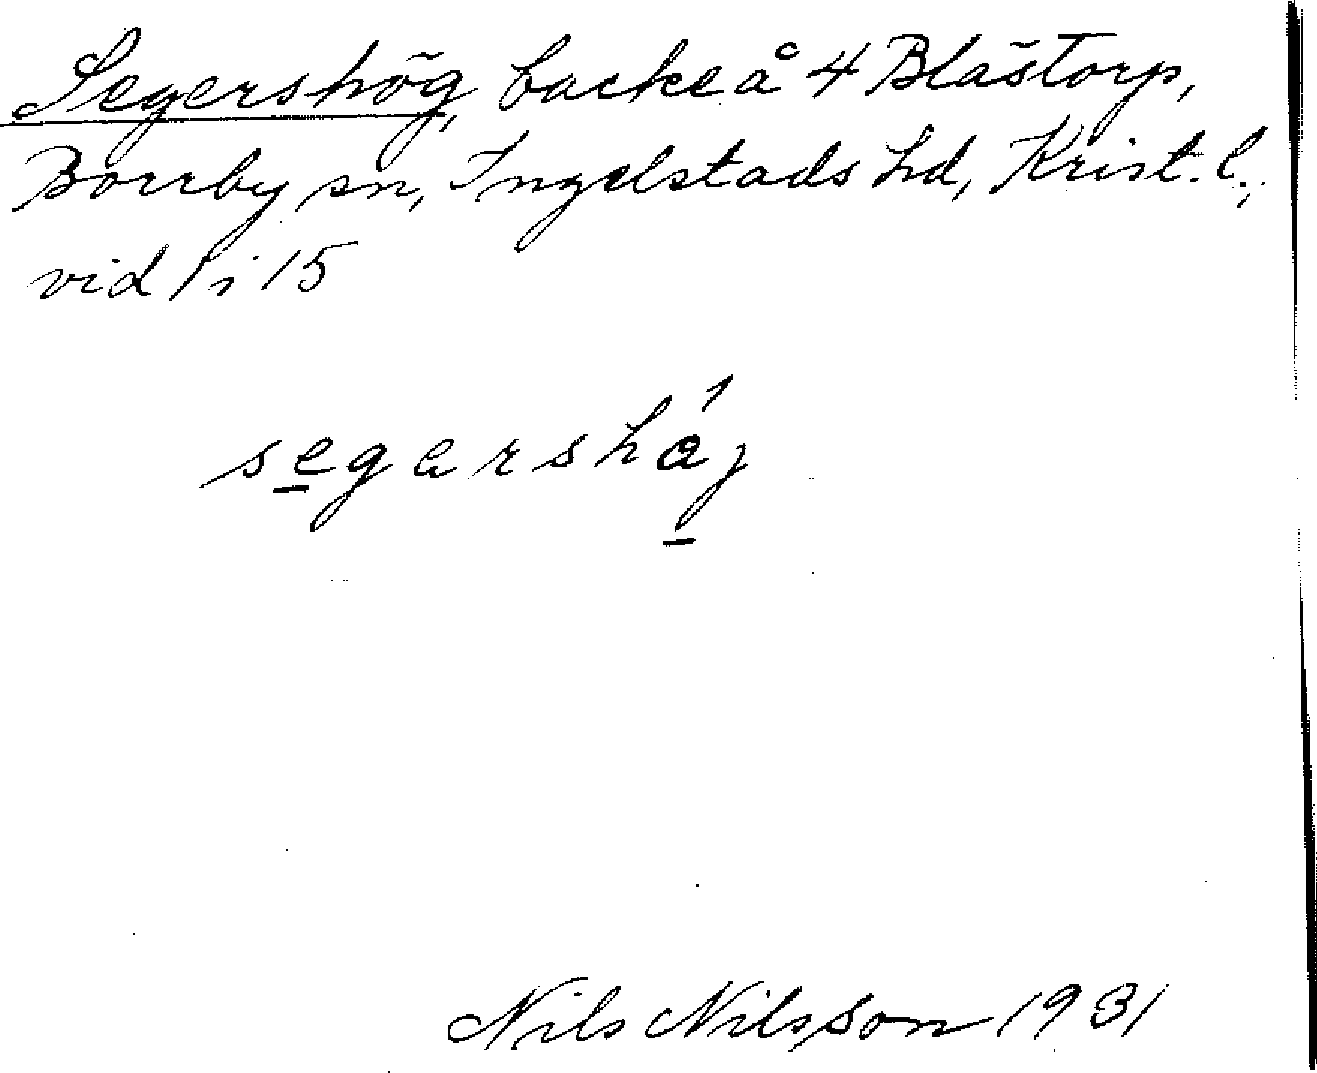 Segershög, backe å 4 Blästorp,
Borrby sn, Ingelstads hd, Krist. l.,
vid 1 i 15
segarshåj
Nils Nilsson 1931